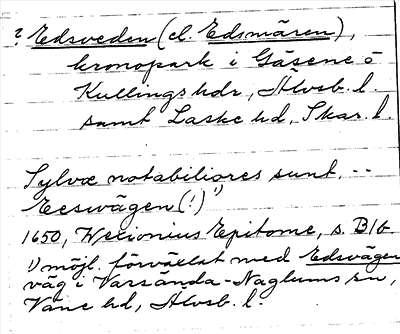 ? Edsveden (el. Edsmären),
kronopark i Gäsene o
Kullings hdr, Älvsb. l.
samt Laske hd, Skar. l.
Sylvæ notabiliores sunt, --
Eeswägen (!) 1)
1650, Wexionius Epitome, s. B1b.
1) möjl. förväxlat med Edsvägen
väg i Väne hd, Älvsb. l.